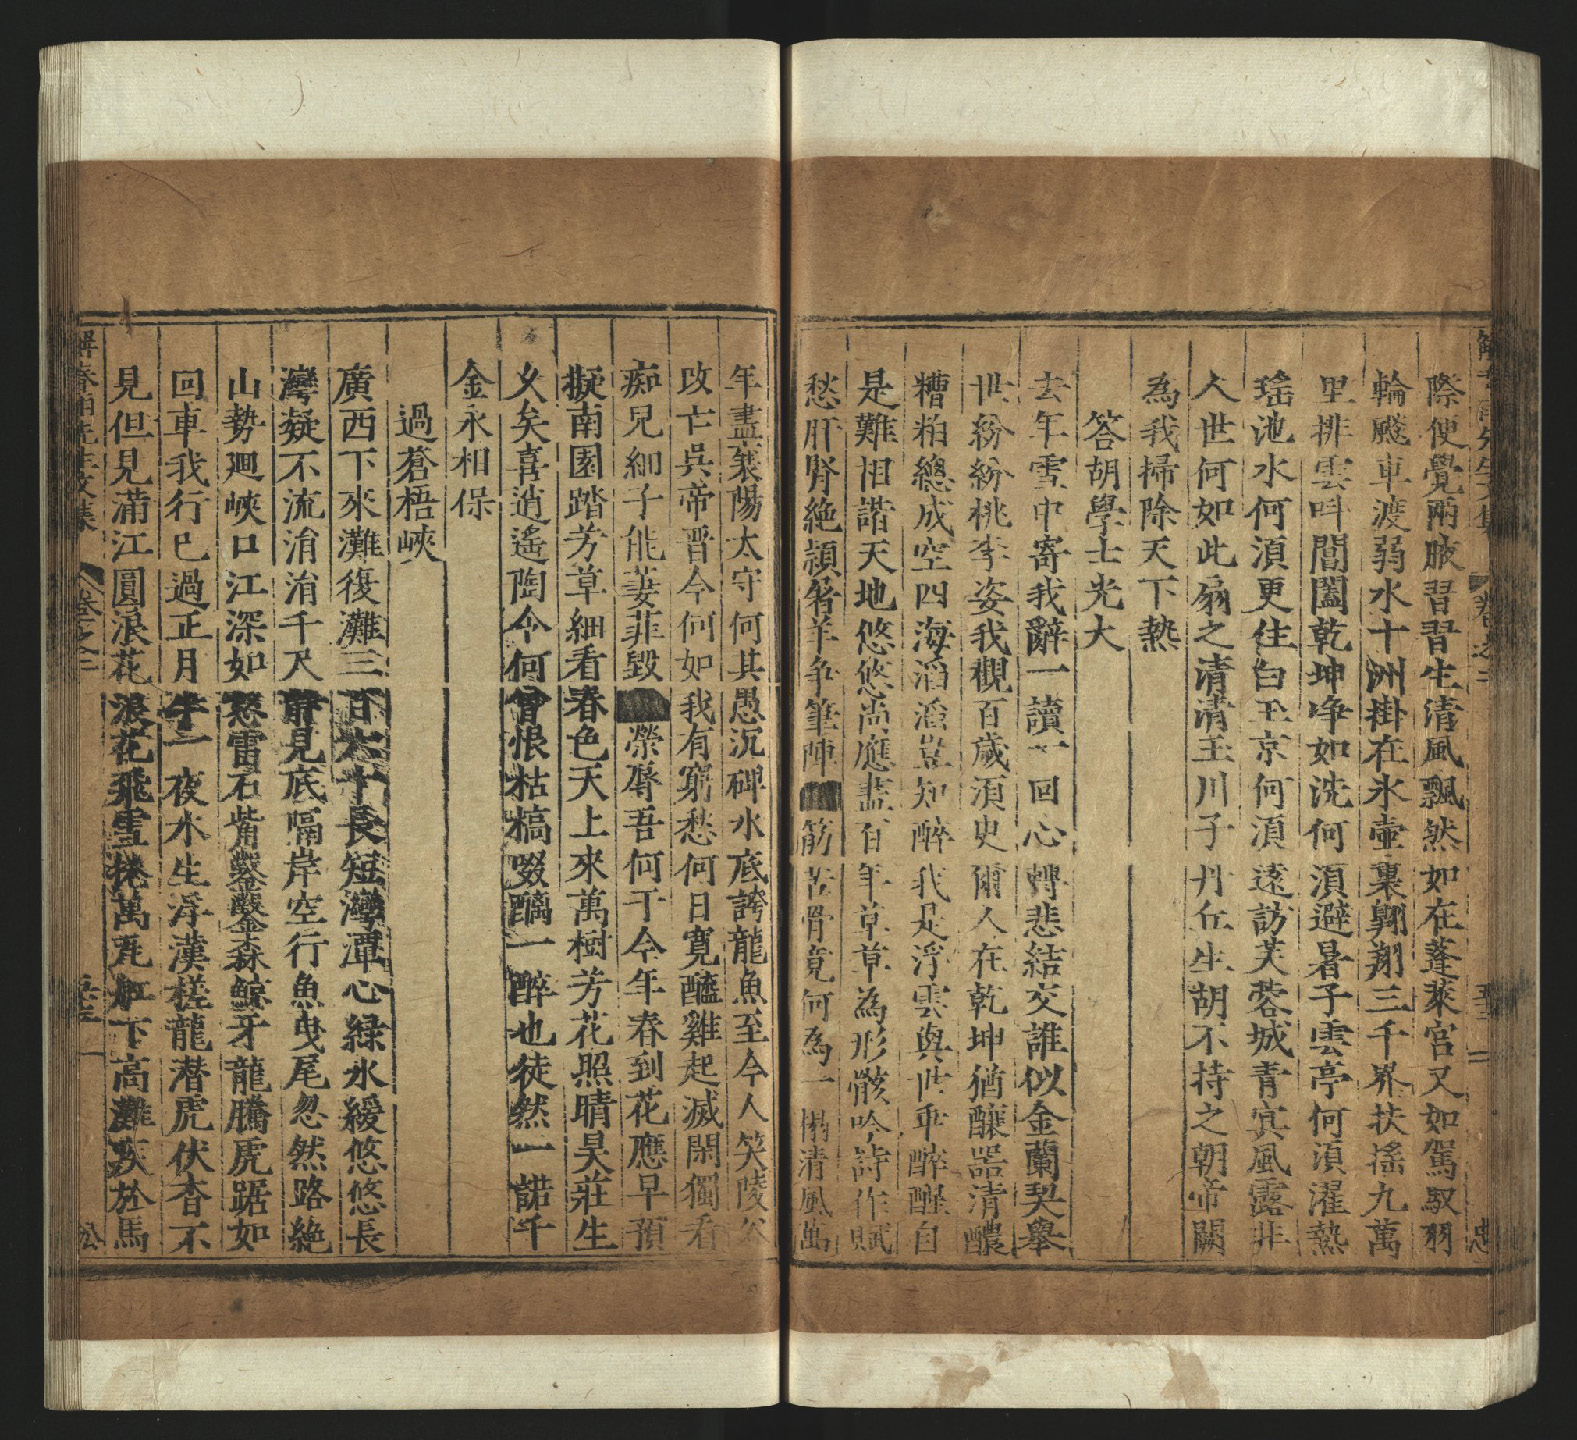 際便覺兩腋習習生清風飄然如在蓬萊宮又如駕馭羽
輪飈車渡弱水十洲掛在氷壺裏翺翔三千界扶揺九萬
里排雲呌閶闔乾坤净如洗何湏避暑子雲亭何湏濯熱
瑤池水何湏更住白玉京何湏遠訪芙蓉城青㝠風露非
人世何如此扇之清清玉川子丹丘生胡不持之朝帝闕
為我掃除天下熱
答胡學士光大
去年雪中寄我辭一讀一回心轉悲結交誰似金蘭契舉
世紛紛桃李姿我觀百歲湏史爾人在乾坤猶釀噐清醲
糟粕總成空四海滔滔豈知醉我是浮雲與世乖醉醒自
是難相諧天地悠悠尚應盡百年草草為形骸吟詩作賦
愁肝腎絶頴㫷羊争筆陣筋苦骨竟何為一榻清風萬
年盡襄陽太守何其愚沉碑水底誇龍魚至今人笑陵谷
改亡吳帝晋今何如我有窮愁何日寛醯雞起滅閑獨看
痴兒細子能萋菲毀榮辱吾何于今年春到花應早預
擬南園踏芳草細看春色天上來萬樹芳花照晴昊莊生
乂矣喜逍遙陶令何曾恨枯槁啜醨一醉也徒然一諾千
金永相保
過蒼梧峽
廣西下來灘復灘三百六十長短灣潭心緑氷緩悠悠長
灣凝不流㳙㳙千尺前見底嗝岸空行魚曳尾忽然路絶
山勢廻峽口江深如怒雷石觜鑿鑿森鯨牙龍騰虎踞如
回車我行已過正月半一夜水生浮漢槎龍潛虎伏杳不
見但見蒲江圓浪花浪花飛雪捲萬瓦舡下高灘疾於馬
解春雨先生文集
卷之二